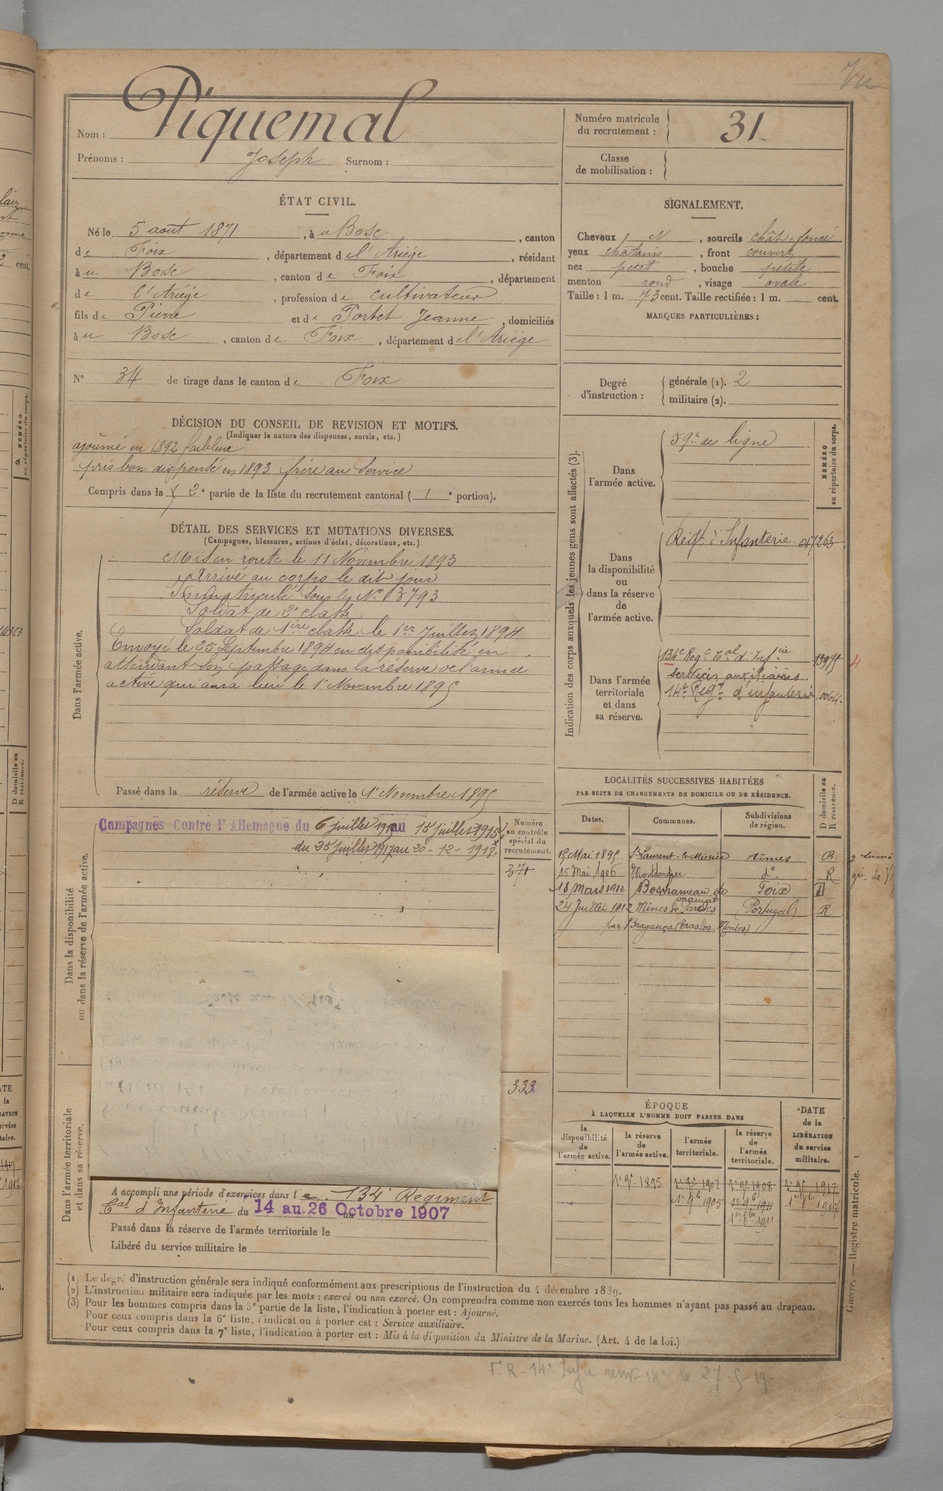 Nom : Piquemal
Prénoms : Joseph Surnom :
Numéro matricule du recrutement : 31
Classe de mobilisation :
ÉTAT CIVIL.
Né le 5 août 1871, à u Bosc, canton
de Foix, département de l'Ariége, résidant
à u Bosc, canton de Foix, département
de l'Ariége, profession de cultivateur
fils de Pierre et de Portet Jeanne, domiciliés
à u Bosc, canton de Foix, département de l'Ariége
N° 34 de tirage dans le canton de Foix
SIGNALEMENT.
Cheveux et N, sourcils chât-foncé
yeux chatains, front couvert
nez petit, bouche petite
menton rond, visage ovale
Taille : 1 m. 73 cent. Taille rectifiée : 1 m. cent.
MARQUES PARTICULIÈRES :
Degré d'instruction : générale (1). 2
militaire (2).
DÉCISION DU CONSEIL DE REVISION ET MOTIFS.
(Indiquer la nature des dispenses, sursis, etc.)
ajourné en 1892 faiblesse
pris bon dispensé en 1893 frère au service
Compris dans la 2e partie de la liste du recrutement cantonal ( 1e portion).
DÉTAIL DES SERVICES ET MUTATIONS DIVERSES.
(Campagnes, blessures, actions d'éclat, décorations, etc.)
Dans l'armée active.
Mis en route le 11 Novembre 1893
Arrivé au corps le dit jour
Immatriculé sous le No 3793
Soldat de 2e classe
Soldat de 1ère classe le 1er Juillet 1894
Envoyé le 25 Septembre 1894 en disponibilité en
attendant son passage dans la réserve de l'armée
active qui aura lieu le 1er Novembre 1895
Passé dans la réserve de l'armée active le 1er Novembre 1895
Indication des corps auxquels les jeunes gens sont affectés (3).
NUMÉRO au répertoire du corps.
Dans l'armée active.
59e de ligne
Dans la disponibilité ou dans la réserve de l'armée active.
Régt d'Infanterie
Dans l'armée territoriale et dans sa réserve.
134e Régt Cal d'Infrie
services auxiliaires
14e Régt d'infanterie
LOCALITÉS SUCCESSIVES HABITÉES
PAR SUITE DE CHANGEMENTS DE DOMICILE OU DE RÉSIDENCE.
Dates. Communes. Subdivisions de région. D domicile ou R résidence.
15 Mai 1895 St Laurent-le-Minier Nimes R
15 Mai 1906 Montdardier do R
18 Mars 1912 Foix D
24 Juillet 1912 Mines de Portugal R
par Bragança
Dans la disponibilité ou dans la réserve de l'armée active.
Campagnes Contre l'Allemagne du 6 juillet au 15 juillet
du 25 juillet 1917 au 20-12-1918
Numéro au contrôle spécial du recrutement.
371
333
Dans l'armée territoriale et dans sa réserve.
A accompli une période d'exercices dans le 134e Régiment
Cal d'Infanterie du 14 au 26 Octobre 1907
Passé dans la réserve de l'armée territoriale le
Libéré du service militaire le
ÉPOQUE
À LAQUELLE L'HOMME DOIT PASSER DANS
la disponibilité de l'armée active. la réserve de l'armée active. l'armée territoriale. la réserve de l'armée territoriale.
DATE de la LIBÉRATION du service militaire.
1er 9bre 1895 1er 9bre 1907 1er 9bre 1908 1er 9bre 1917
1er 8bre 1905 1er 9bre 1911 1er 8bre 1917
1er 8bre 1911
(1) Le degré d'instruction générale sera indiqué conformément aux prescriptions de l'instruction du 4 décembre 1889.
(2) L'instruction militaire sera indiquée par les mots : exercé ou non exercé. On comprendra comme non exercés tous les hommes n'ayant pas passé au drapeau.
(3) Pour les hommes compris dans la 5e partie de la liste, l'indication à porter est : Ajourné.
Pour ceux compris dans la 6e liste, l'indication à porter est : Service auxiliaire.
Pour ceux compris dans la 7e liste, l'indication à porter est : Mis à la disposition du Ministre de la Marine. (Art. 4 de la loi.)
Guerre. — Registre matricule. 1